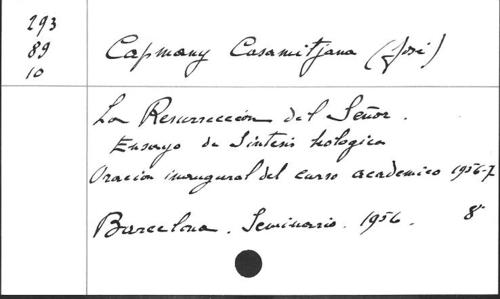 293
89
10
Capmany Casamitjana (José)
La Resurrección del Señor.
Ensayo de Síntesis teologica
Oración inaugural del curso academico 1956-7
Barcelona. Seminario. 1956. 8º